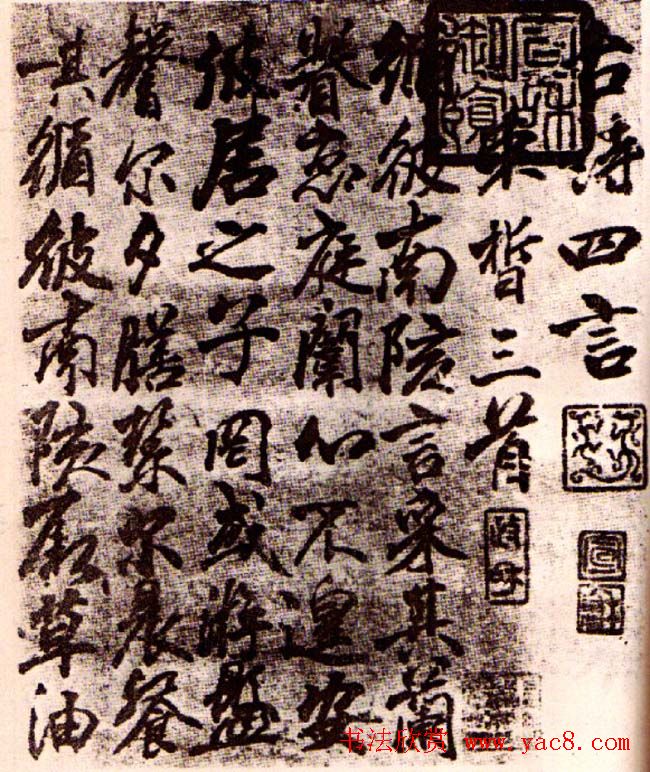 古詩四言
束晳三首
循彼南陔言采其蘭
眷恋庭闈心不遑安
彼居之子罔或游盤
馨尔夕膳絜尔晨餐
其循彼南陔厥草油
书法欣赏 www.yac8.com